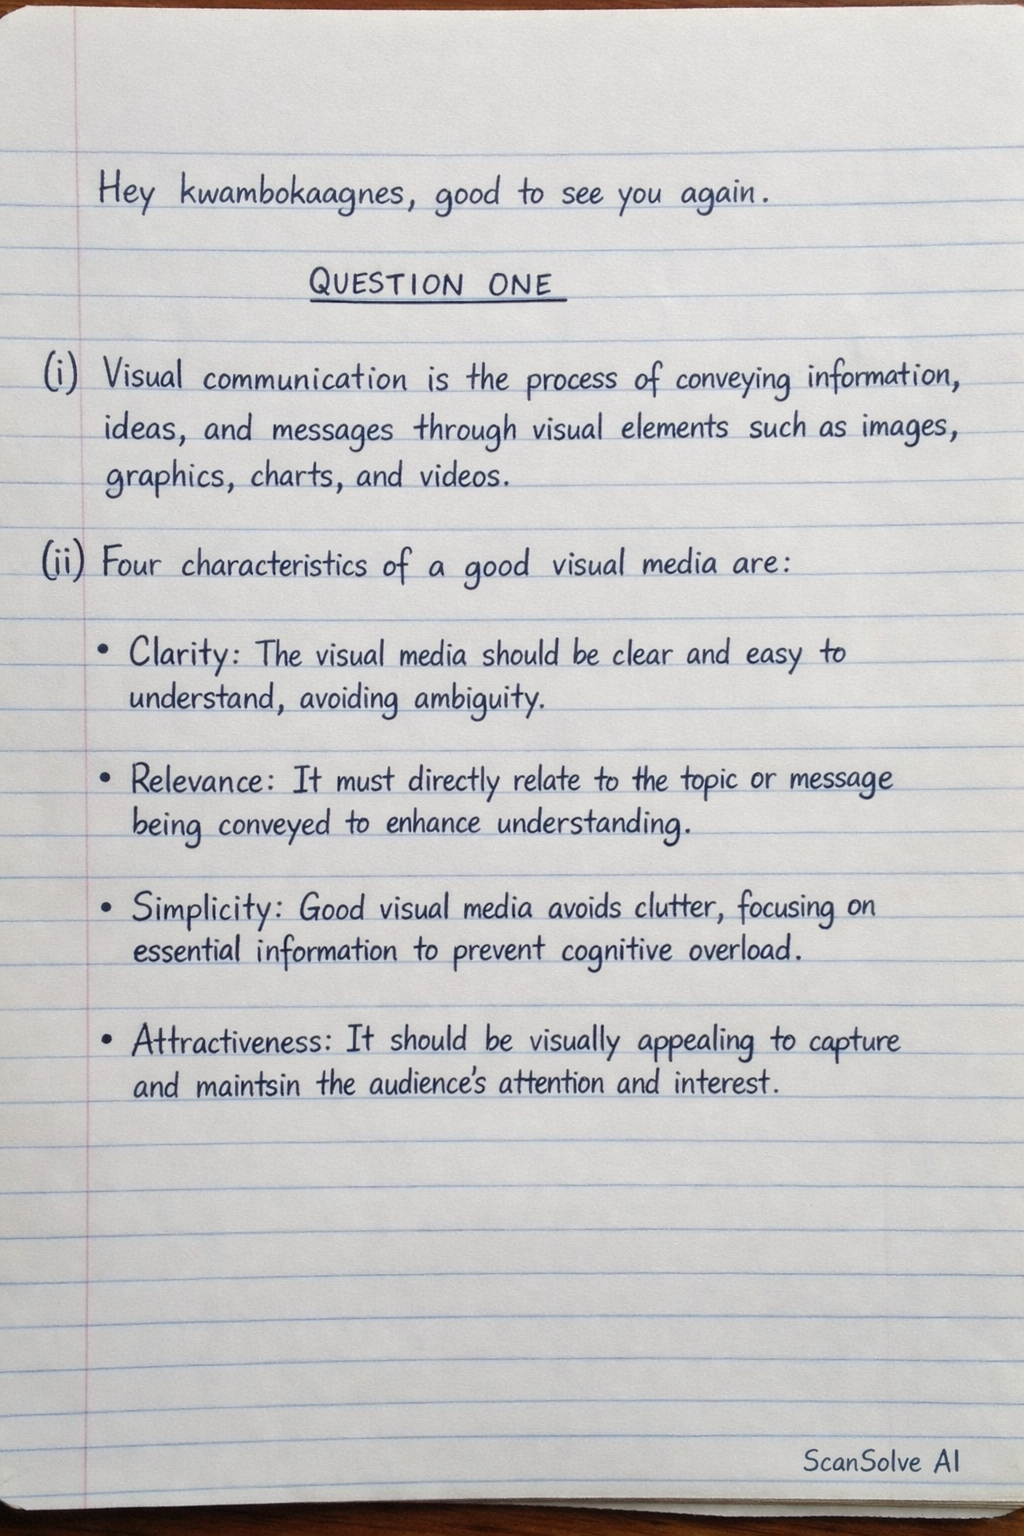 Hey kwambokaagnes, good to see you again.
QUESTION ONE
(i) Visual communication is the process of conveying information,
ideas, and messages through visual elements such as images,
graphics, charts, and videos.
(ii) Four characteristics of a good visual media are:
• Clarity: The visual media should be clear and easy to
understand, avoiding ambiguity.
• Relevance: It must directly relate to the topic or message
being conveyed to enhance understanding.
• Simplicity: Good visual media avoids clutter, focusing on
essential information to prevent cognitive overload.
• Attractiveness: It should be visually appealing to capture
and maintsin the audience's attention and interest.
ScanSolve AI